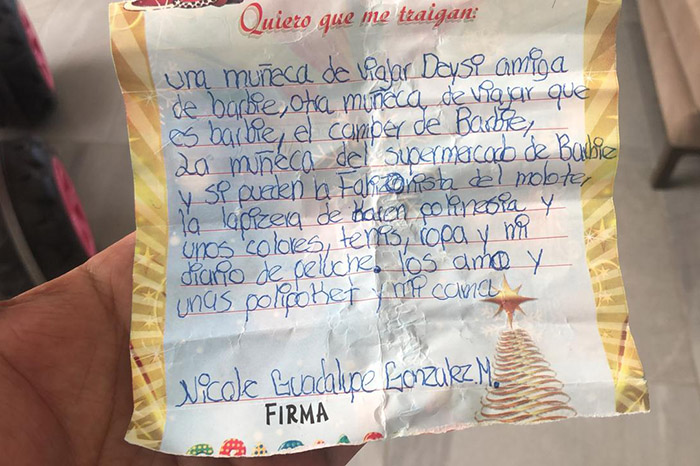 Quiero que me traigan:
una muñeca de viajar Deysi amiga
de barbie, otra muñeca de viajar que
es barbie, el camper de Barbie,
La muñeca del supermercado de Barbie
y si pueden la del moloter
la lapizera de karen polinesia y
unos colores, tenis, ropa y mi
diario de peluche. los amo y
unas polipoket y mi cama
Nicole Guadalupe Gonzalez.M.
FIRMA